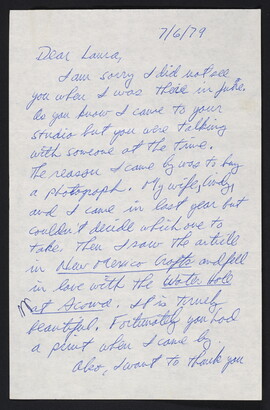 7/6/79
Dear Laura,
I am sorry I did not see
you when I was there in June.
do you know I came to your
studio but you were talking
with someone at the time.
The reason I came by was to buy
a photograph. My wife, Lindy,
and I came in last year but
couldn't decide which one to
take. Then I saw the article
in New Mexico Crafts and fell
in love with the Water Hole
at Acoma. It is truely
beautiful. Fortunately you had
a print when I came by.
Also, I want to thank you